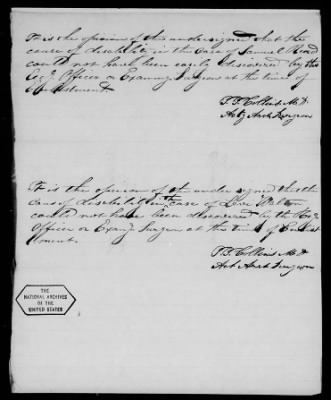 It is the opinion of the undersigned that the
cause of disability in the case of Samuel
could not have been easily discovered by the
Officer or Surgeon at the time of
Enlistment.
M.D.
Surgeon
It is the opinion of the under signed the
cause of disability in the case of
could not have been discovered by the
Officer or Surgeon at the time of Enlist
ment.
Collins M.D.
Surgeon
THE
NATIONAL ARCHIVES
OF THE
UNITED STATES